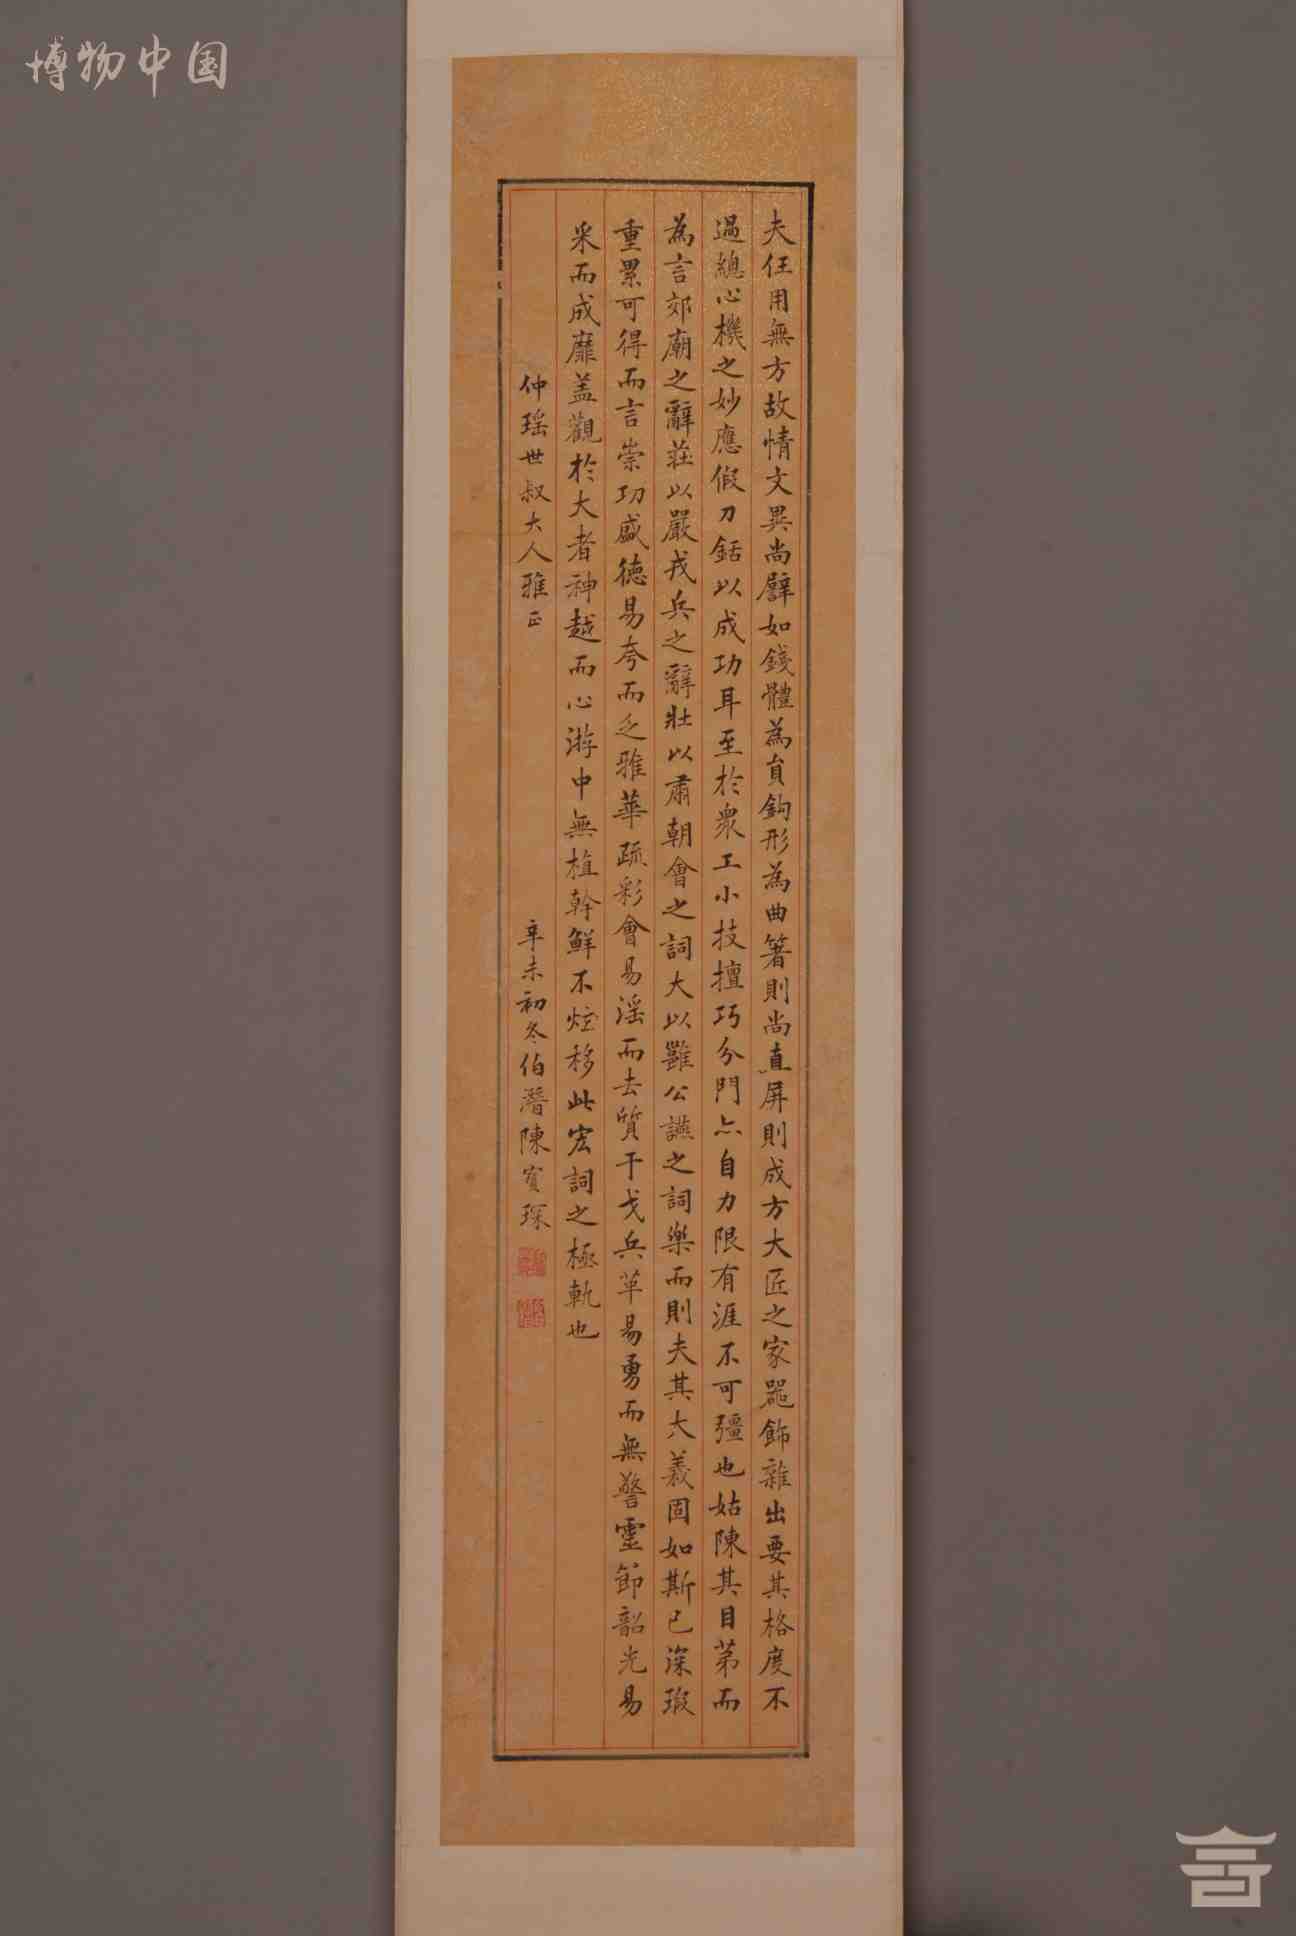 博物中国
夫任用無方故情文異尚譬如錢體為員鉤形為曲箸則尚直屏則成方大匠之家器飾雜出要其格度不
過總心機之妙應假刀鋸以成功耳至於衆工小技擅巧分門亦自力限有涯不可彊也姑陳其目第而
為言郊廟之辭莊以嚴戎兵之辭壯以肅朝會之詞大以雝公讌之詞樂而則夫其大義固如斯已深瑕
重累可得而言崇功盛德易夸而乏雅華疏彩會易淫而去質干戈兵革易勇而無警靈節韶光易
采而成靡蓋觀於大者神越而心游中無植幹鮮不炫移此宏詞之極軌也
仲瑶世叔大人雅正
辛未初冬伯潛陳寶琛